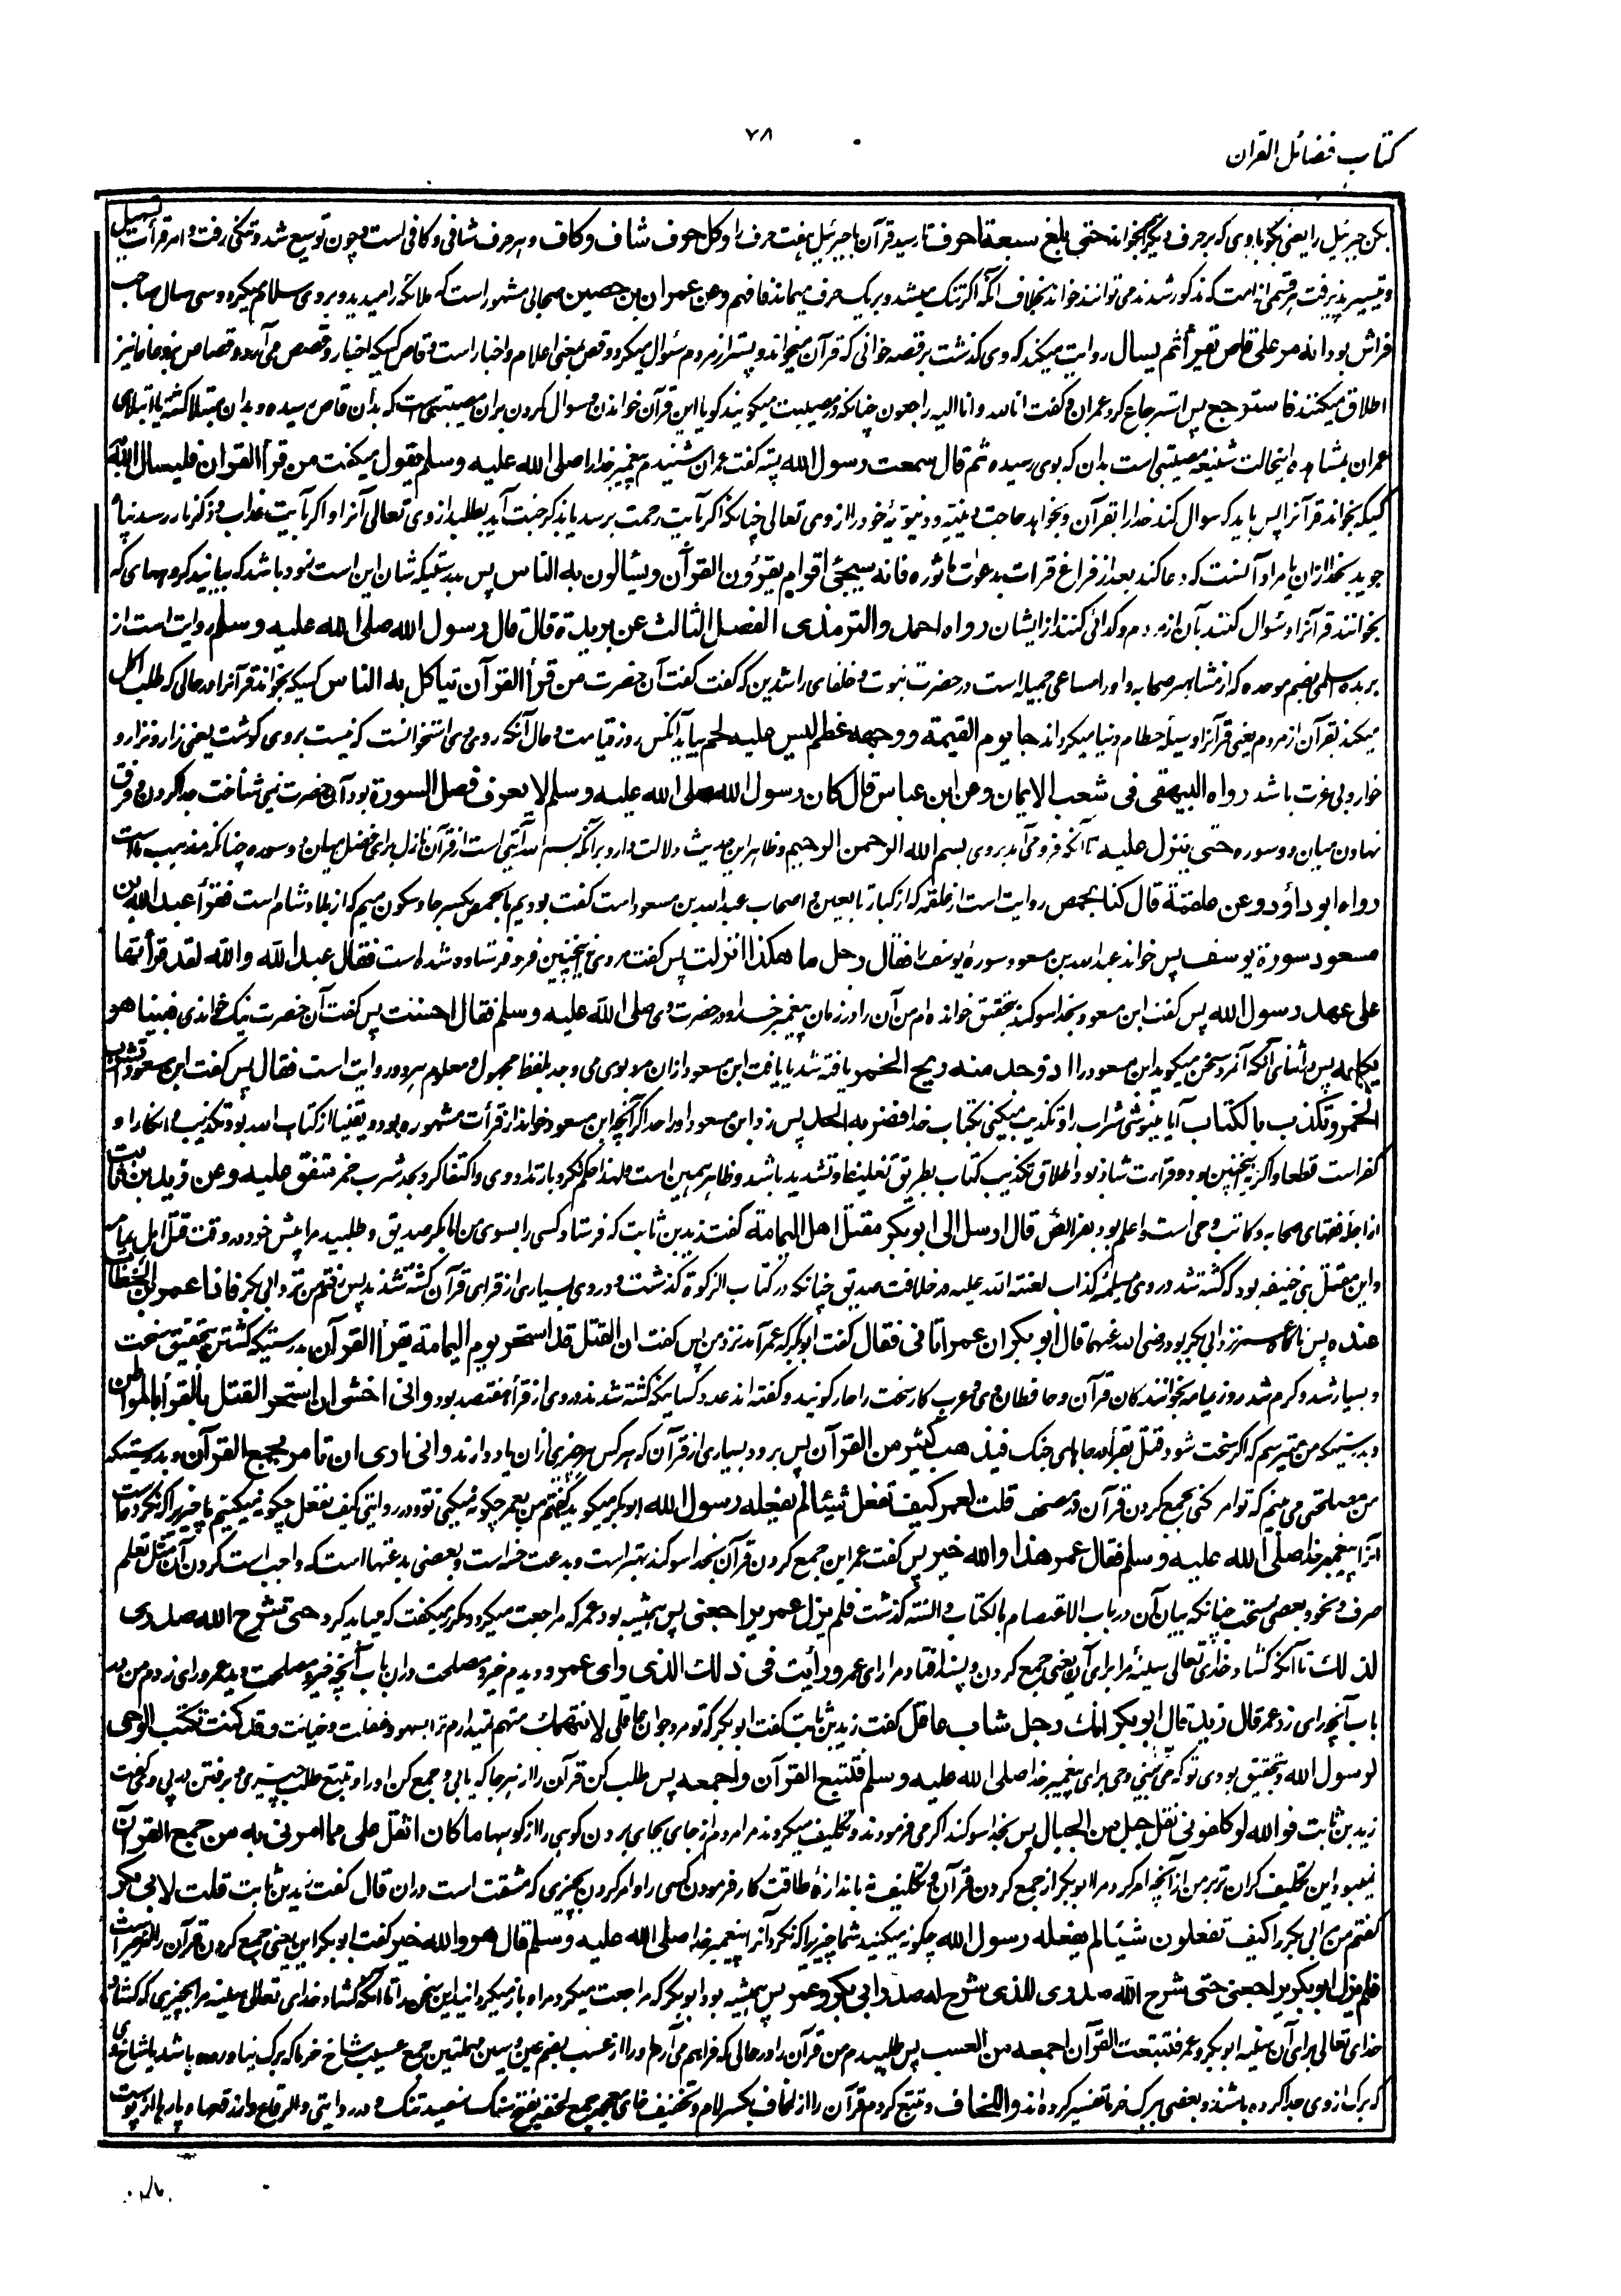 کتاب فضائل القرآن
۷۸
بکن جبرئیل را یعنی بگو با وی که بر حرف دیگر بخواند حتی بلغ سبعة احرف تا رسید قرآن با جبرئیل بهفت حرف را و کل حرف شاف و کاف و هر حرف شافی و کافی است و چون توسیع شد و تنگی رفت و امر قرأت تسهیل
و تیسیر پذیرفت هر قسمی ازامت که مذکور شدند می توانند خواند بخلاف آنکه اگر تنگ میشد و بر یک حرف میماند فافهم وعن عمران بن حصین صحابی مشهور است که ملائکه را میدید و بروی سلام میکرد و سی سال صاحب
فراش بود انه مر علی قاص یقرأ ثم یسأل روایت میکند که وی گذشت بر قصه خوانی که قرآن میخواند و پستر از مردم سئوال میکرد و قص بمعنی اعلام و اخبار است و قاص کسیکه اخبار و قصص می آرد و قصاص بر وعاظ نیز
اطلاق میکنند فاسترجع پس استرجاع کرد عمران و گفت انا لله و انا الیه راجعون چنانکه در مصیبت میگویند گویا این قرآن خواندن و سوال کردن بران مصیبتی است که بدان قاص رسیده و بدان مبتلا گشته یا ابتلای
عمران بمشاهده اینحالت شنیعه مصیبتی است بدان که بوی رسیده ثم قال سمعت رسول الله پسته گفت عمران شنیدم پیغمبر خدا را صلی الله علیه وسلم یقول میگفت من قرأ القرآن فلیسأل الله به
کسیکه بخواند قرآنرا پس باید که سوال کند خدا را بقرآن و بخواهد حاجت دینیه و دنیویه خود را از وی تعالی چنانکه اگر بآیت رحمت برسد یا بذکر جنت آید بطلبد از وی تعالی آنرا و اگر بآیت عذاب و ذکر نار رسد پناه
جوید بخدا ازان یا مراد آنست که دعا کند بعد از فراغ قرات بدعوات ماثوره فانه سیجئ اقوام یقرؤن القرآن ویسألون به الناس پس بدرستیکه شان این است زود باشد که بیایند گروههای که
بخوانند قرآنرا و سئوال کنند بآن از مردم و گدائی کنند از ایشان رواه احمد والترمذی الفصل الثالث عن بریدة قال قال رسول الله صلی الله علیه وسلم روایت است از
بریده اسلمی بضم موحده که از مشاهیر صحابه و او را مساعی جمیله است در حضرت نبوت و خلفای راشدین که گفت گفت آن حضرت من قرأ القرآن یتأکل به الناس کسیکه بخواند قرآنرا در حالی که طلب اکل
میکند بقرآن از مردم یعنی قرآنرا وسیله حطام دنیا میگرداند جاء یوم القیمة ووجهه عظم لیس علیه لحم بیاید آنکس روز قیامت و حال آنکه روی وی استخوانست که نیست بروی گوشت یعنی زار و نزار و
خوار و بی عزت باشد رواه البیهقی فی شعب الایمان وعن ابن عباس قال کان رسول الله صلی الله علیه وسلم لا یعرف فصل السورة بود آن حضرت نمی شناخت جدا کردن و فرق
نهادن میان دو سوره حتی ینزل علیه تا آنکه فرو می آمد بروی بسم الله الرحمن الرحیم و ظاهر این حدیث دلالت دارد بر آنکه بسم الله آیتی است از قرآن نازل برای فصل میان دو سوره چنانکه مذهب ماست
رواه ابو داؤد وعن علقمة قال کنا بحمص روایت است از علقمه که از کبار تابعین و اصحاب عبدالله بن مسعود است گفت بودیم ما بحمص بکسر حا و سکون میم که از بلاد شام است فقرأ عبد الله بن
مسعود سورة یوسف پس خواند عبدالله بن مسعود سوره یوسف را فقال رجل ما هکذا انزلت پس گفت مردی نه اینچنین فرو فرستاده شده است فقال عبد الله والله لقد قرأتها
علی عهد رسول الله پس گفت ابن مسعود بخدا سوگند بتحقیق خوانده ام من آن را در زمان پیغمبر خدا و در حضرت وی صلی الله علیه وسلم فقال احسنت پس گفت آن حضرت نیک خواندی فبینا هو
یکلمه پس در اثنای آنکه آنمرد سخن میگوید ابن مسعود را اذ وجد منه ریح الخمر یافته شد یا یافت ابن مسعود ازان مرد بوی می وجد بلفظ مجهول و معلوم هر دو روایت است فقال پس گفت ابن مسعود اتشرب
الخمر وتکذب بالکتاب آیا مینوشی شراب را و تکذیب میکنی بکتاب خدا فضربه الحد پس زد ابن مسعود او را حد اگر آنچه ابن مسعود خواند از قرأت مشهوره بود و یقینا از کتاب الله بود تکذیب و انکار او
کفر است قطعا و اگر نه اینچنین بود و قراءت شاذ بود اطلاق تکذیب کتاب بطریق تغلیظ و تشدید باشد و ظاهر همین است ولهذا حکم نکرد بارتداد وی و اکتفا کرد بحد شرب خمر متفق علیه وعن زید بن ثابت
از اجله فقهای صحابه و کاتب وحی است و اعلم بود بفرائض قال ارسل الی ابو بکر مقتل اهل الیمامة گفت زید بن ثابت که فرستاد کسی را بسوی من ابابکر صدیق و طلبید مرا پیش خود در وقت قتل اهل یمامه
و این مقتل بنی حنیفه بود که کشته شد در وی مسیلمه کذاب لعنة الله علیه در خلافت صدیق چنانکه در کتاب الزکوة گذشت و در وی بسیاری از قرای قرآن کشته شدند پس رفتم من نزد ابی بکر فاذا عمر بن الخطاب
عنده پس ناگاه عمر نزد ابی بکر بود رضی الله عنهما قال ابو بکر ان عمر اتانی فقال گفت ابوبکر که عمر آمد نزد من پس گفت ان القتل قد استحر یوم الیمامة بقراء القرآن بدرستیکه کشتن بتحقیق سخت
و بسیار شد و گرم شد روز یمامه بخوانندگان قرآن و حافظان وی و عرب کار سخت را حار گویند و گفته اند عدد کسانیکه کشته شدند در وی از قراء هفتصد بود وانی اخشی ان استحر القتل بالقراء بالمواطن
و بدرستیکه من میترسم که اگر سخت شود قتل بقراء در جاهای جنگ فیذهب کثیر من القرآن پس برود بسیاری از قرآن که هر کس هر جزوی ازان یاد دارند وانی اری ان تامر بجمع القرآن و بدرستیکه
من مصلحت می بینم که تو امر کنی بجمع کردن قرآن در مصحف قلت لعمر کیف تفعل شیئا لم یفعله رسول الله ابوبکر میگوید گفتم من بعمر چگونه میکنی تو و در روایتی کیف نفعل چگونه میکنیم ما چیزیرا که نکرده است
آنرا پیغمبر خدا صلی الله علیه وسلم فقال عمر هذا والله خیر پس گفت عمر این جمع کردن قرآن بخدا سوگند بهتر است و بدعت حسنه است و بعضی بدعتها است که واجب است کردن آن مثل تعلم
صرف و نحو و بعضی مستحب چنانکه بیان آن در باب الاعتصام بالکتاب و السنة گذشت فلم یزل عمر یراجعنی پس همیشه بود عمر که مراجعت میکرد و مکرر میگفت که میباید کرد حتی شرح الله صدری
لذلک تا آنکه گشاد خدای تعالی سینه مرا برای آن یعنی جمع کردن و پسند افتاد مرا رای عمر ورأیت فی ذلک الذی رای عمر و دیدم خیر و مصلحت دران باب آنچه خیر و مصلحت دید عمر و رای زدم من در
باب آنچه رای زد عمر قال زید قال ابو بکر انک رجل شاب عاقل گفت زید بن ثابت گفت ابوبکر که تو مرد جوان عاقلی لا نتهمک متهم نمیدارم ترا بسهو و غفلت و خیانت وقد کنت تکتب الوحی
لرسول الله و بتحقیق بودی تو که می نوشتی وحی برای پیغمبر خدا صلی الله علیه وسلم فتتبع القرآن واجمعه پس طلب کن قرآن را از هر جا که یابی و جمع کن او را و تتبع طلب چیزی و رفتن در پی وی گفت
زید بن ثابت فوالله لو کلفونی نقل جبل من الجبال پس بخدا سوگند اگر می فرمودند و تکلیف میکردند مرا مردم از جای بجای بردن کوهی را از کوهها ما کان اثقل علی مما امرنی به من جمع القرآن
نمیبود این تکلیف گران تر بر من از آنچه امر کرد مرا ابوبکر از جمع کردن قرآن و تکلیف نه باندازه طاقت کار فرمودن کسی را و امر کردن بچیزی که مشقت است دران قال گفت زید بن ثابت قلت لابی بکر
گفتم من ابی بکر را کیف تفعلون شیئا لم یفعله رسول الله چگونه میکنید شما چیزیرا که نکرد آنرا پیغمبر خدا صلی الله علیه وسلم قال هو والله خیر گفت ابوبکر این یعنی جمع کردن قرآن والله خیر است
فلم یزل ابو بکر یراجعنی حتی شرح الله صدری للذی شرح له صدر ابی بکر وعمر پس همیشه بود ابوبکر که مراجعت میکرد مرا و باز میگردانید این سخن را تا آنکه گشاد خدای تعالی سینه مرا بچیزی که گشاد
خدای تعالی برای آن سینه ابوبکر و عمر فتتبعت القرآن اجمعه من العسب پس طلبیدم من قرآن را در حالی که فراهم می آرم او را از عسب بضم عین و سین مهملتین جمع عسیب شاخ خرما که برگ نیاورده باشد یا شاخ وی
که برگ از وی جدا کرده باشند و بعضی ببرگ خرما تفسیر کرده اند واللخاف و تتبع کردم قرآن را از لخاف بکسر لام و تخفیف خای معجمه جمع لخفه بفتح سنگ سفید تنگ و در روایتی والرقاع و از رقعها و پارهای پوست